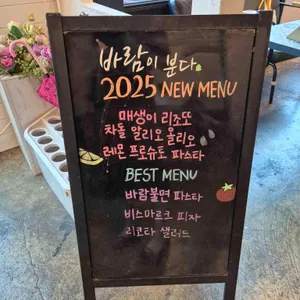 바람이 분다
2025 NEW MENU
매생이 리조또
차돌 알리오 올리오
레몬 프로슈토 파스타
BEST MENU
바람불면 파스타
비스마르크 피자
리코타 샐러드